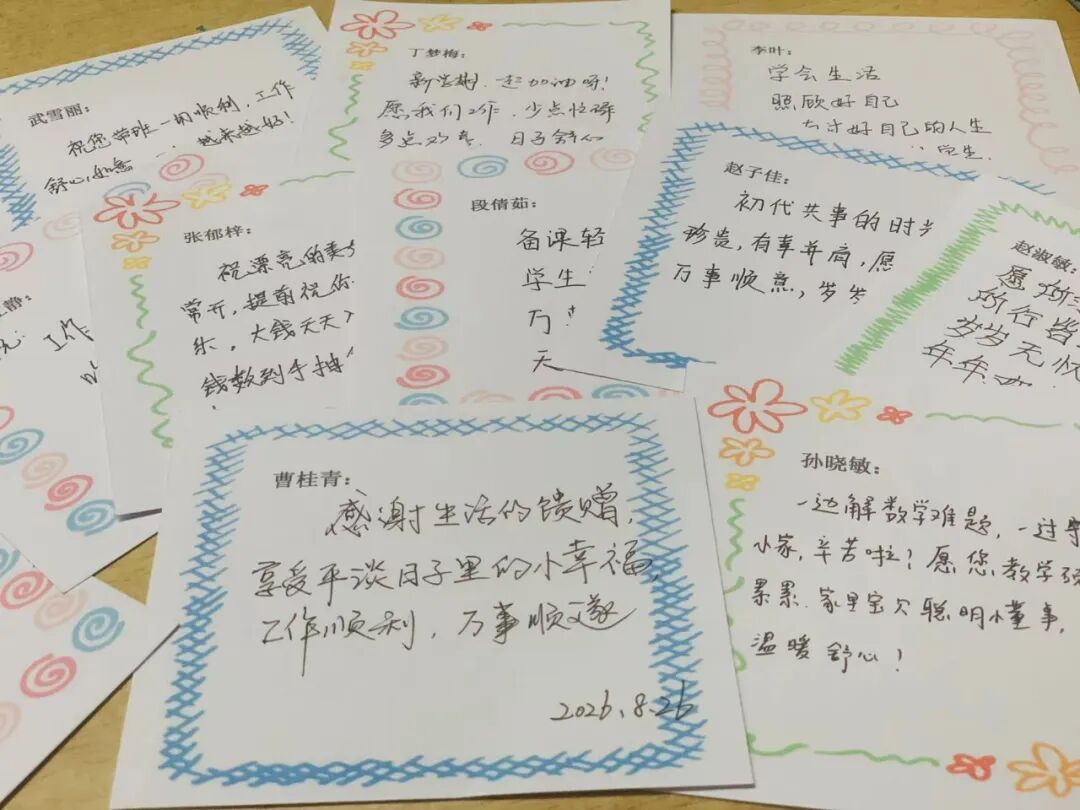 武雪丽:
祝您带班一切顺利,工作
舒心如意 越来越好!
丁梦梅:
新学期一起加油呀!
愿我们工作,少点忙碌
多点欢喜 日子舒心
李叶:
学会生活
照顾好自己
好自己的人生
学生.
张郁梓:
祝漂亮的
常开,提前祝你
乐,大钱天天
钱数到手抽
段倩茹:
备课轻
学生
万
天
赵子佳:
初代共事的时
珍贵,有幸并肩,愿
万事顺意,岁岁
赵淑敏:
愿所
所行皆
岁岁无忧
年年
静:
工作
曹桂青:
感谢生活的馈赠,
享受平淡日子里的小幸福,
工作顺利,万事顺遂
2026.8.26
孙晓敏:
一边解数学难题,一边
小家,辛苦啦!愿您教学硕
累累.家里宝贝聪明懂事,
温暖舒心!